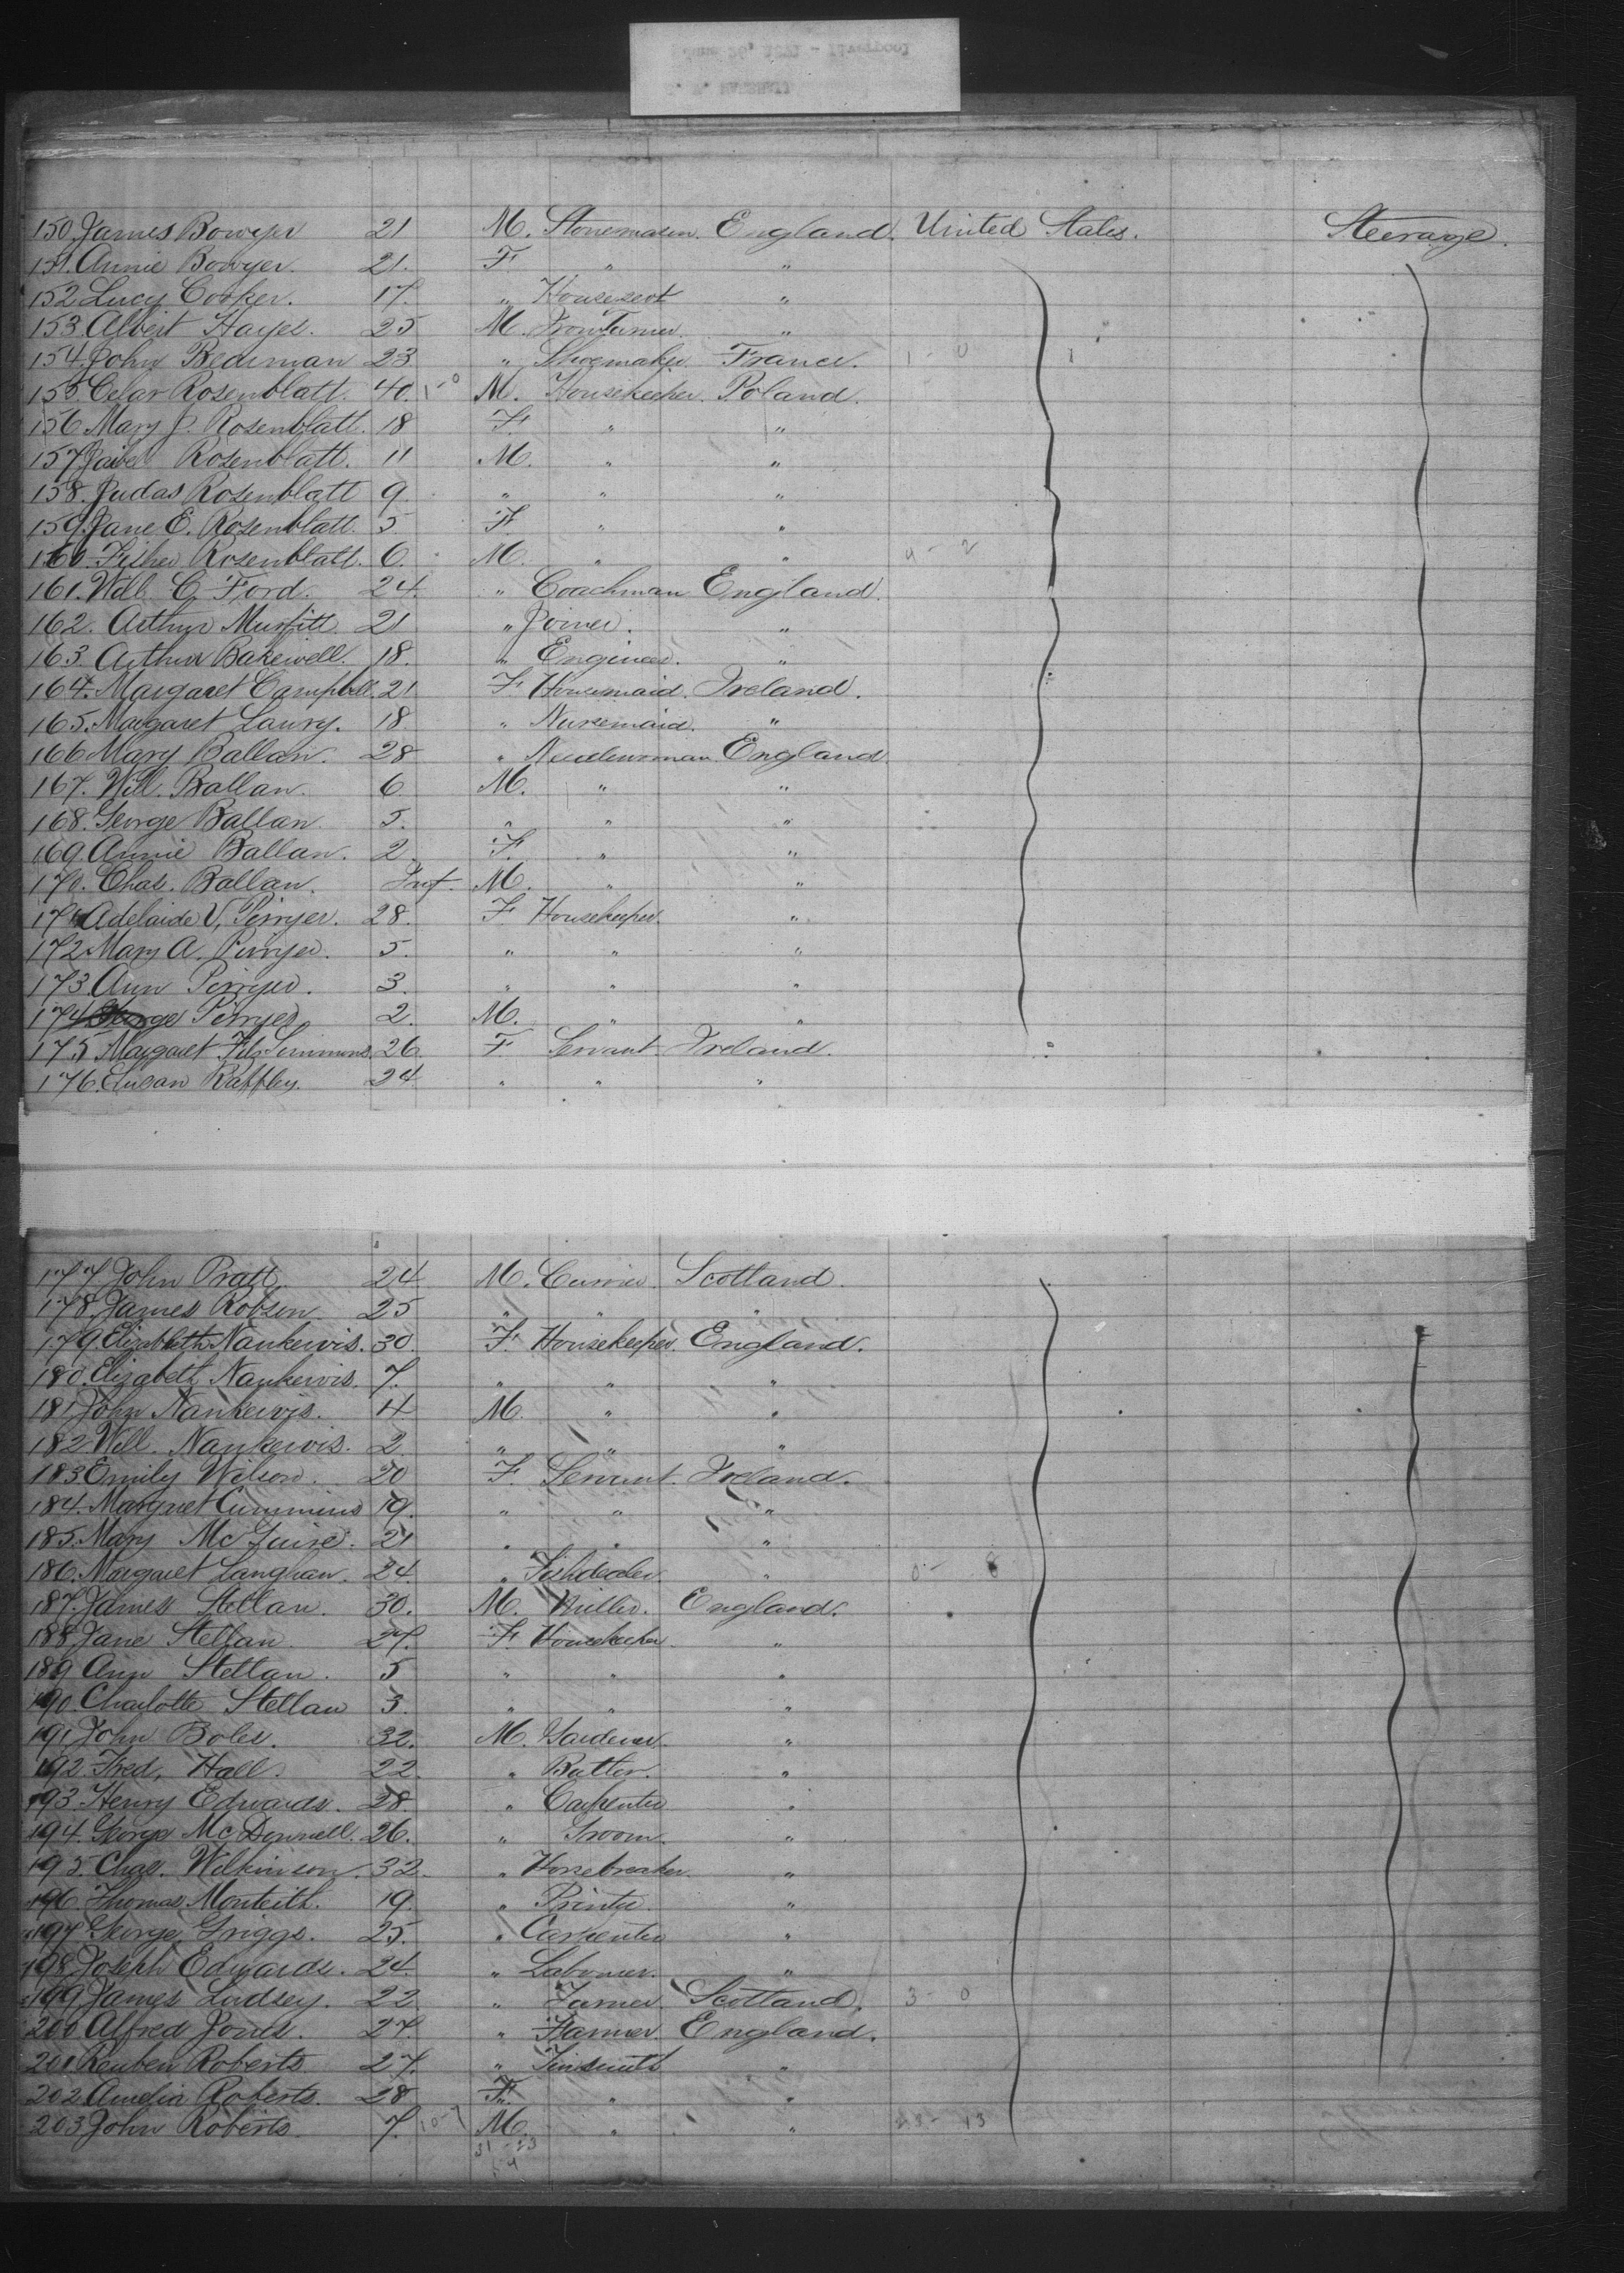 June 26, 1871 - Liverpool
150 James Bowyer 21 M. Stonemason. England. United States. Steerage.
151. Annie Bowyer. 21. F " "
152 Lucy Cooker. 17. " Houseservt "
153 Albert Hayes. 25 M. "
154. John Bederman 23 " Shoemaker France. 1 - 0
155. Celar Rosenblatt. 40. 1-0 M. Housekeeper. Poland.
156 Mary J. Rosenblatt. 18 F. " "
157. Rosenblatt. 11 M. " "
158. Judas Rosenblatt 9. " " "
159. Jane E. Rosenblatt. 5 F. " "
160 Fisher Rosenblatt. 6. M. " " 4 - 2
161. Will C. Ford. 24 " Coachman England.
162. Arthur Murfitt 21 " Joiner. "
163 Arthur Bakewell. 18. " Engineer. "
164. Margaret Campbell. 21 F Housemaid. Ireland.
165. Margaret Laury. 18. " Nursemaid. "
166 Mary Ballan. 28 " Needlewoman England
167. Will. Ballan. 6 M. " "
168. George Ballan. 5. " " "
169. Annie Ballan. 2 F. " "
170. Chas. Ballan. Inf. M. " "
171 Adelaide V. Pirryer. 28. F Housekeeper. "
172 Mary A. Pirryer. 5. " " "
173. Ann Pirryer. 3. " " "
174 George Pirryer 2. M. " "
175 Margaret FitzSimmons 26 F Servant Ireland.
176. Susan Raffley. 24 " " "
177 John Pratt. 24 M. Currier. Scotland.
178. James Robson 25 " " "
179. Elizabbeth Nankervis. 30. F. Housekeeper. England.
180. Elizabeth Nankervis. 7. " " "
181 John Nankervis. 4 M. " "
182 Will. Nankervis. 2. " " "
183 Emily Wilson. 20 F Servant Ireland.
184. Margret Cummins 19. " " "
185. Mary McGuire. 21 " " "
186. Margaret Langhan. 24. " Fishdealer. " 0 - 8
187. James Stellan. 30. M. Miller. England.
188 Jane Stellan. 27. F. Housekeeper "
189 Ann Stellan. 5 " " "
190. Charlotte Stellan 3. " " "
191 John Boles. 32. M. Gardener. "
192. Fred. Hall. 22. " Butler. "
193. Henry Edwards. 28. " Carpenter "
194. George McDonnell. 26. " Groom. "
195. Chas. Wilkinson. 32. " Horsebreaker. "
196. Thomas Monteith. 19. " Printer. "
197 George Griggs. 25. " Carpenter "
198 Joseph Edwards. 24. " Labourer. "
199 James Ludsey. 22 " Farmer. Scotland. 3 - 0
200 Alfred Jones. 27. " Farmer. England.
201 Reuben Roberts 27. " Tinsmith "
202 Amelia Roberts. 28 F. " "
203 John Roberts. 7. 10-7 M. " " 23 - 13
31 - 23
54